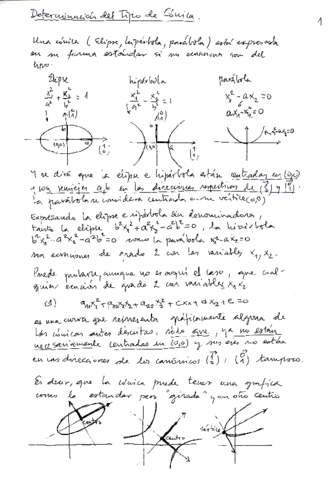 Determinación del Tipo de Cónica.
1
Una cónica (Elipse, hipérbola, parábola) está expresada
en su forma estándar si su ecuación son del
tipo.
Elipse hipérbola parábola
x₁²/a² + x₂²/b² = 1 x₁²/a² - x₂²/b² = 1 x₁² - ax₂ = 0
ax₁ - x₂² = 0
Y se dirá que la elipse e hipérbola están centradas en (0,0)
y con semiejes a, b en las direcciones respectivas de (1 0) y (0 1)
La parábola se considera centrada en su vértice (0,0)
Expresando la elipse e hipérbola sin denominadores,
tanto la elipse b²x₁² + a²x₂² - a²b² = 0, la hipérbola
b²x₁² - a²x₂² - a²b² = 0 como la parábola x₁² - ax₂ = 0
son ecuaciones de grado 2 con las variables x₁, x₂.
Puede probarse, aunque no es aquí el caso, que cual-
quier ecuación de grado 2 con variables x₁ x₂
(1) a₁₁x₁² + a₁₂x₁x₂ + a₂₂x₂² + cx₁ + dx₂ + e = 0
es una curva que representa gráficamente alguna de
las cónicas antes descritas, sólo que, ya no están
necesariamente centradas en (0,0) y sus ejes no están
en las direcciones de los canónicos (1 0), (0 1) tampoco.
Es decir, que la cónica puede tener una gráfica
como la estándar pero "girada" y en otro centro
centro centro vértice